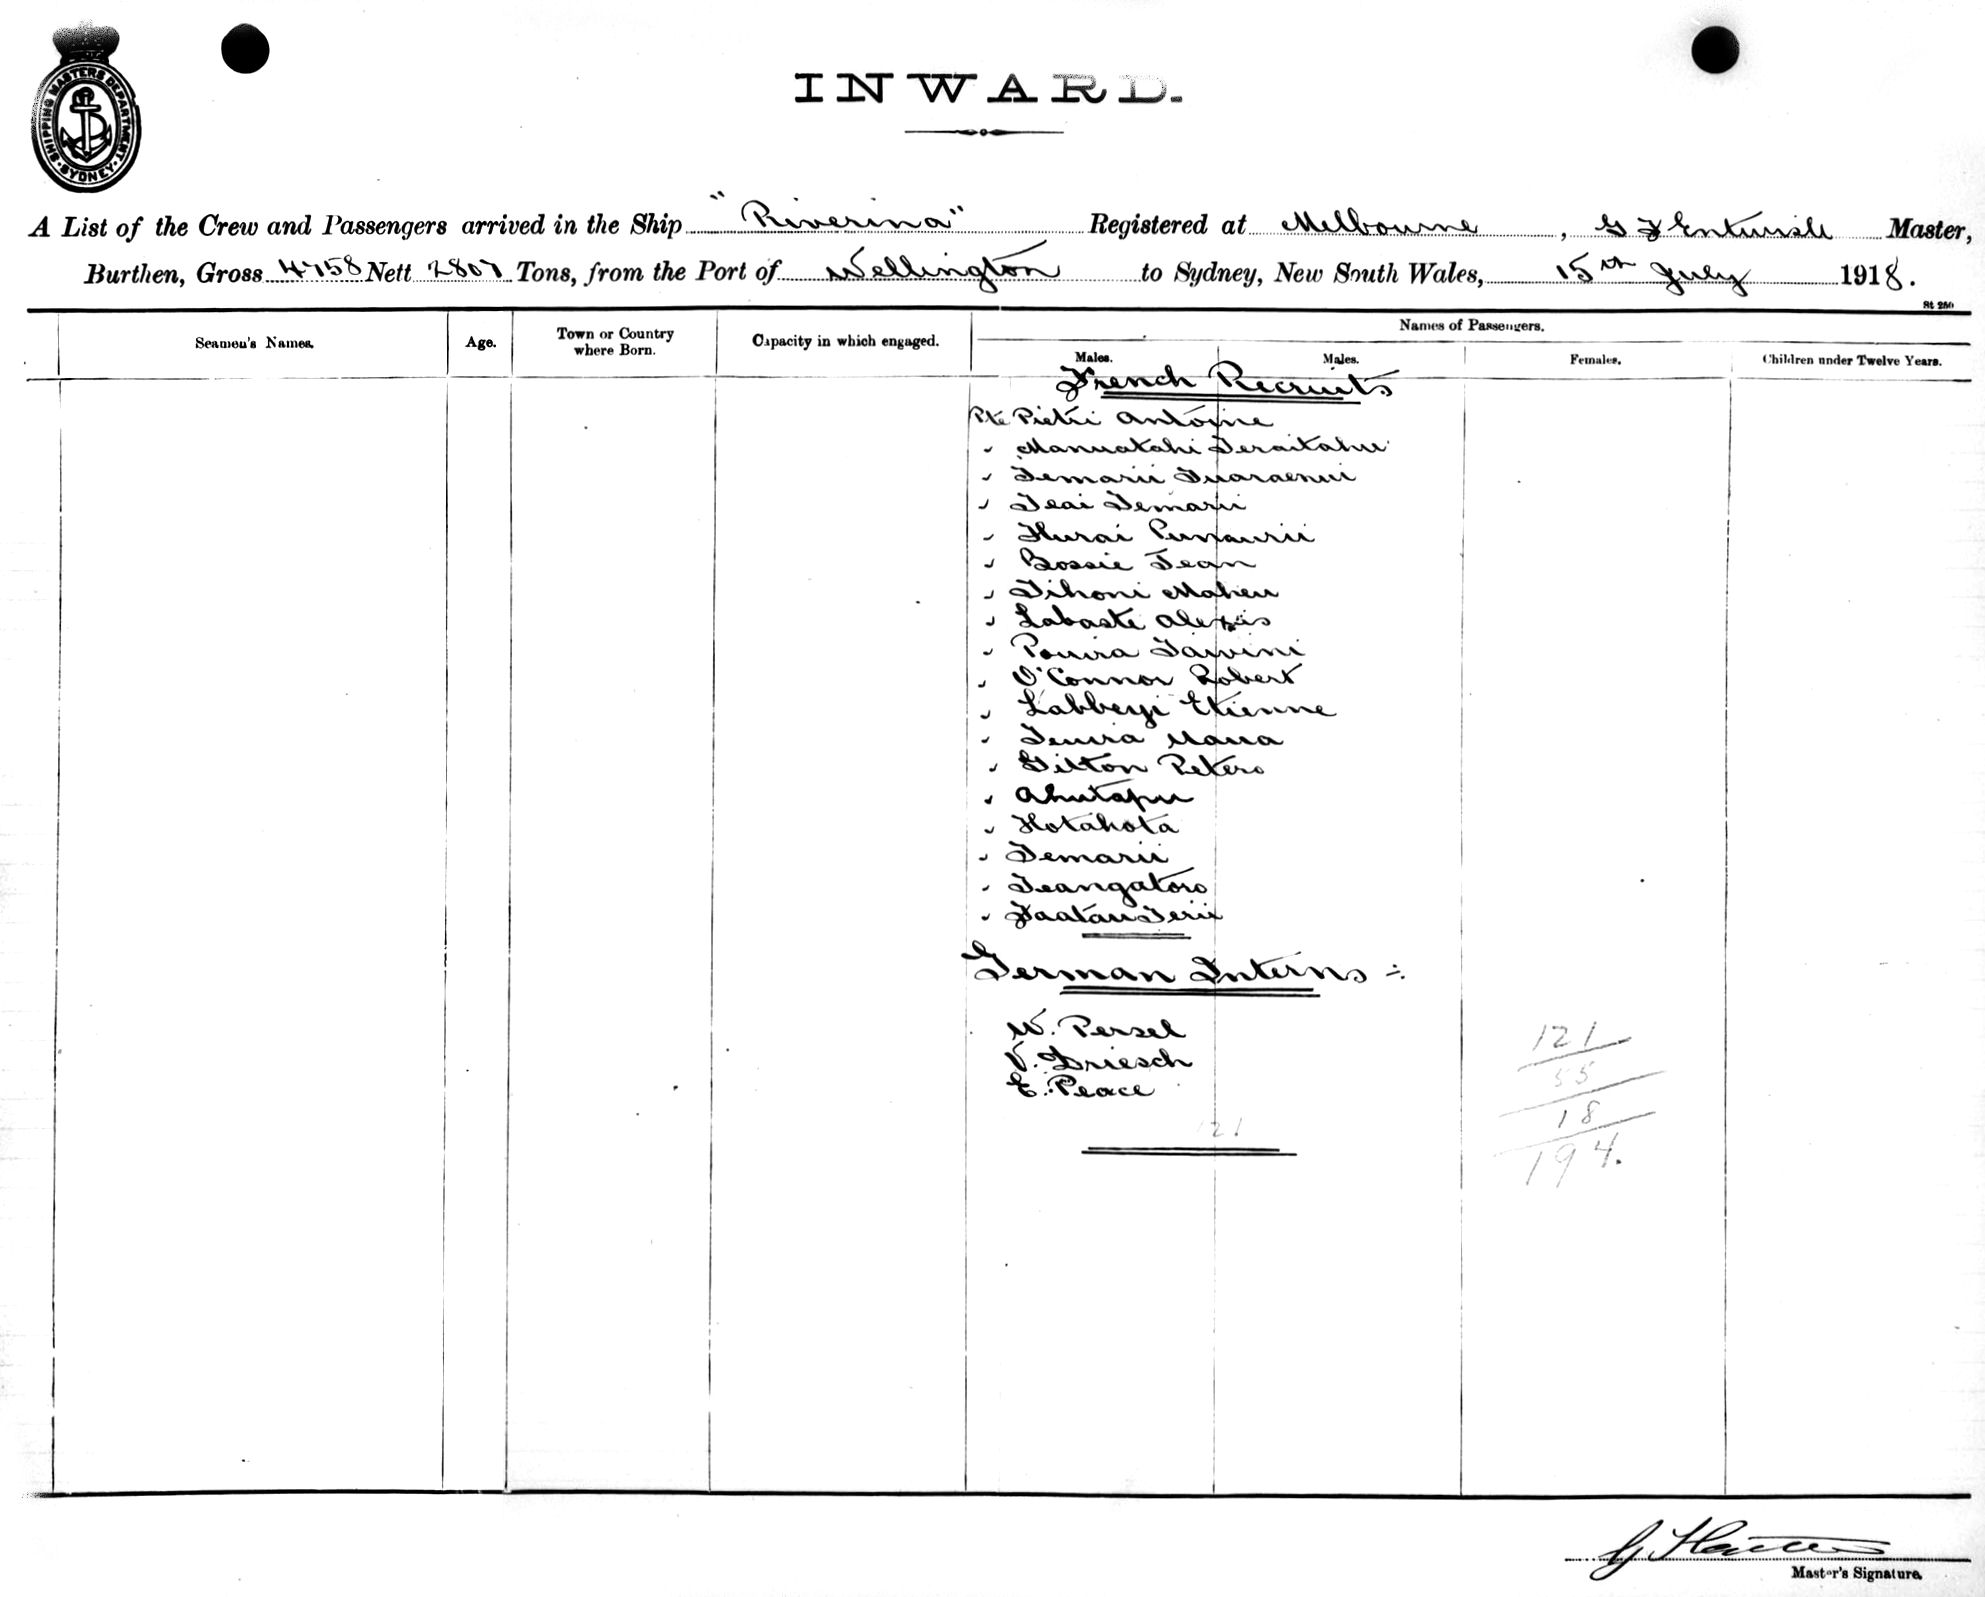 SHIPPING MASTERS DEPARTMENT
SYDNEY
INWARD.
A List of the Crew and Passengers arrived in the Ship "Riverina" Registered at Melbourne, G F Entwisle Master,
Burthen, Gross 4758 Nett 2807 Tons, from the Port of Wellington to Sydney, New South Wales, 15th July 1918.
St 250
Seamen's Names. Age. Town or Country where Born. Capacity in which engaged. Names of Passengers.
Males. Males. Females. Children under Twelve Years.
French Recruits
Pte Pietri Antoine
" Manuatahi Teraitahu
" Temarii Tuaraenui
" Teai Temarii
" Hurai Punaurii
" Bossie Jean
" Tihoni Maheu
" Labaste Alexis
" Pouira Tawini
" O'Connor Robert
" Labbeyi Etienne
" Teuira Mana
" Titton Petero
" Ahutapu
" Hotahota
" Temarii
" Teangatoro
" Faatau Terii
German Interns :-
W. Persel
V. Driesch
E. Peace
121
121
55
18
194.
Master's Signature.